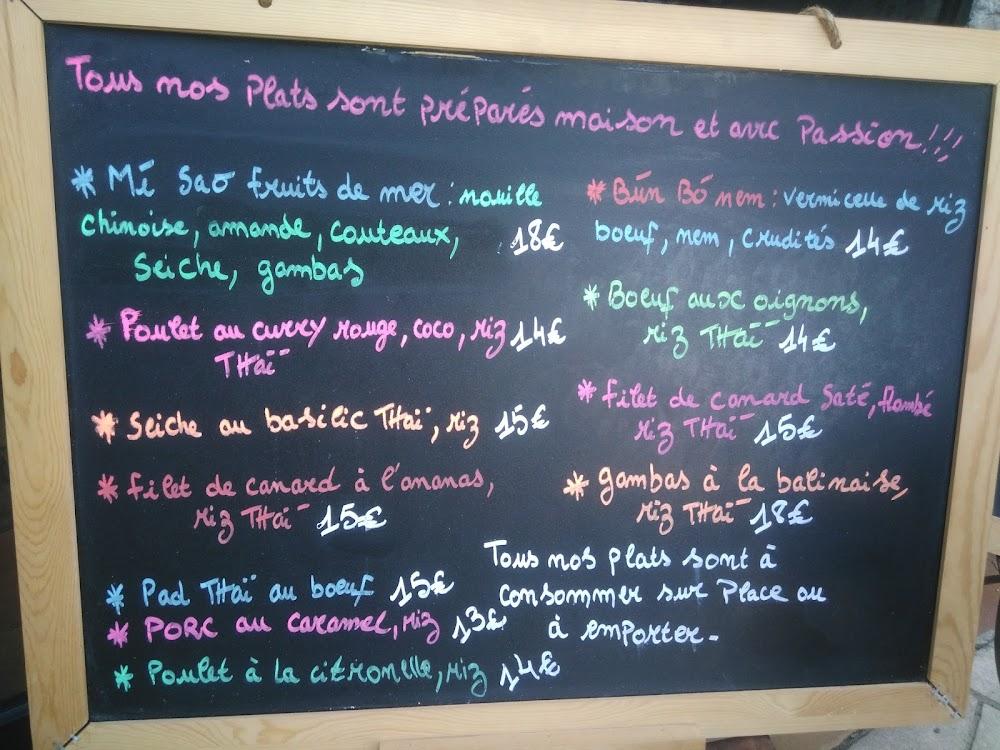 Tous nos Plats sont préparés maison et avec Passion!!!
* Mé Sao fruits de mer : nouille
chinoise, amande, couteaux, 18€
seiche, gambas
* Poulet au curry rouge, coco, riz 14€
THaï
* Seiche au basilic THaï, riz 15€
* filet de canard à l'ananas,
riz THaï 15€
* Pad THaï au boeuf 15€
* PORC au caramel, riz 13€
* Poulet à la citronelle, riz 14€
* Bún Bó nem : vermicelle de riz
boeuf, nem, crudités 14€
* Boeuf aux oignons,
riz THaï 14€
* filet de canard Saté, flambé
riz THaï 15€
* gambas à la balinaise,
riz THaï 18€
Tous nos plats sont à
consommer sur Place ou
à emporter-